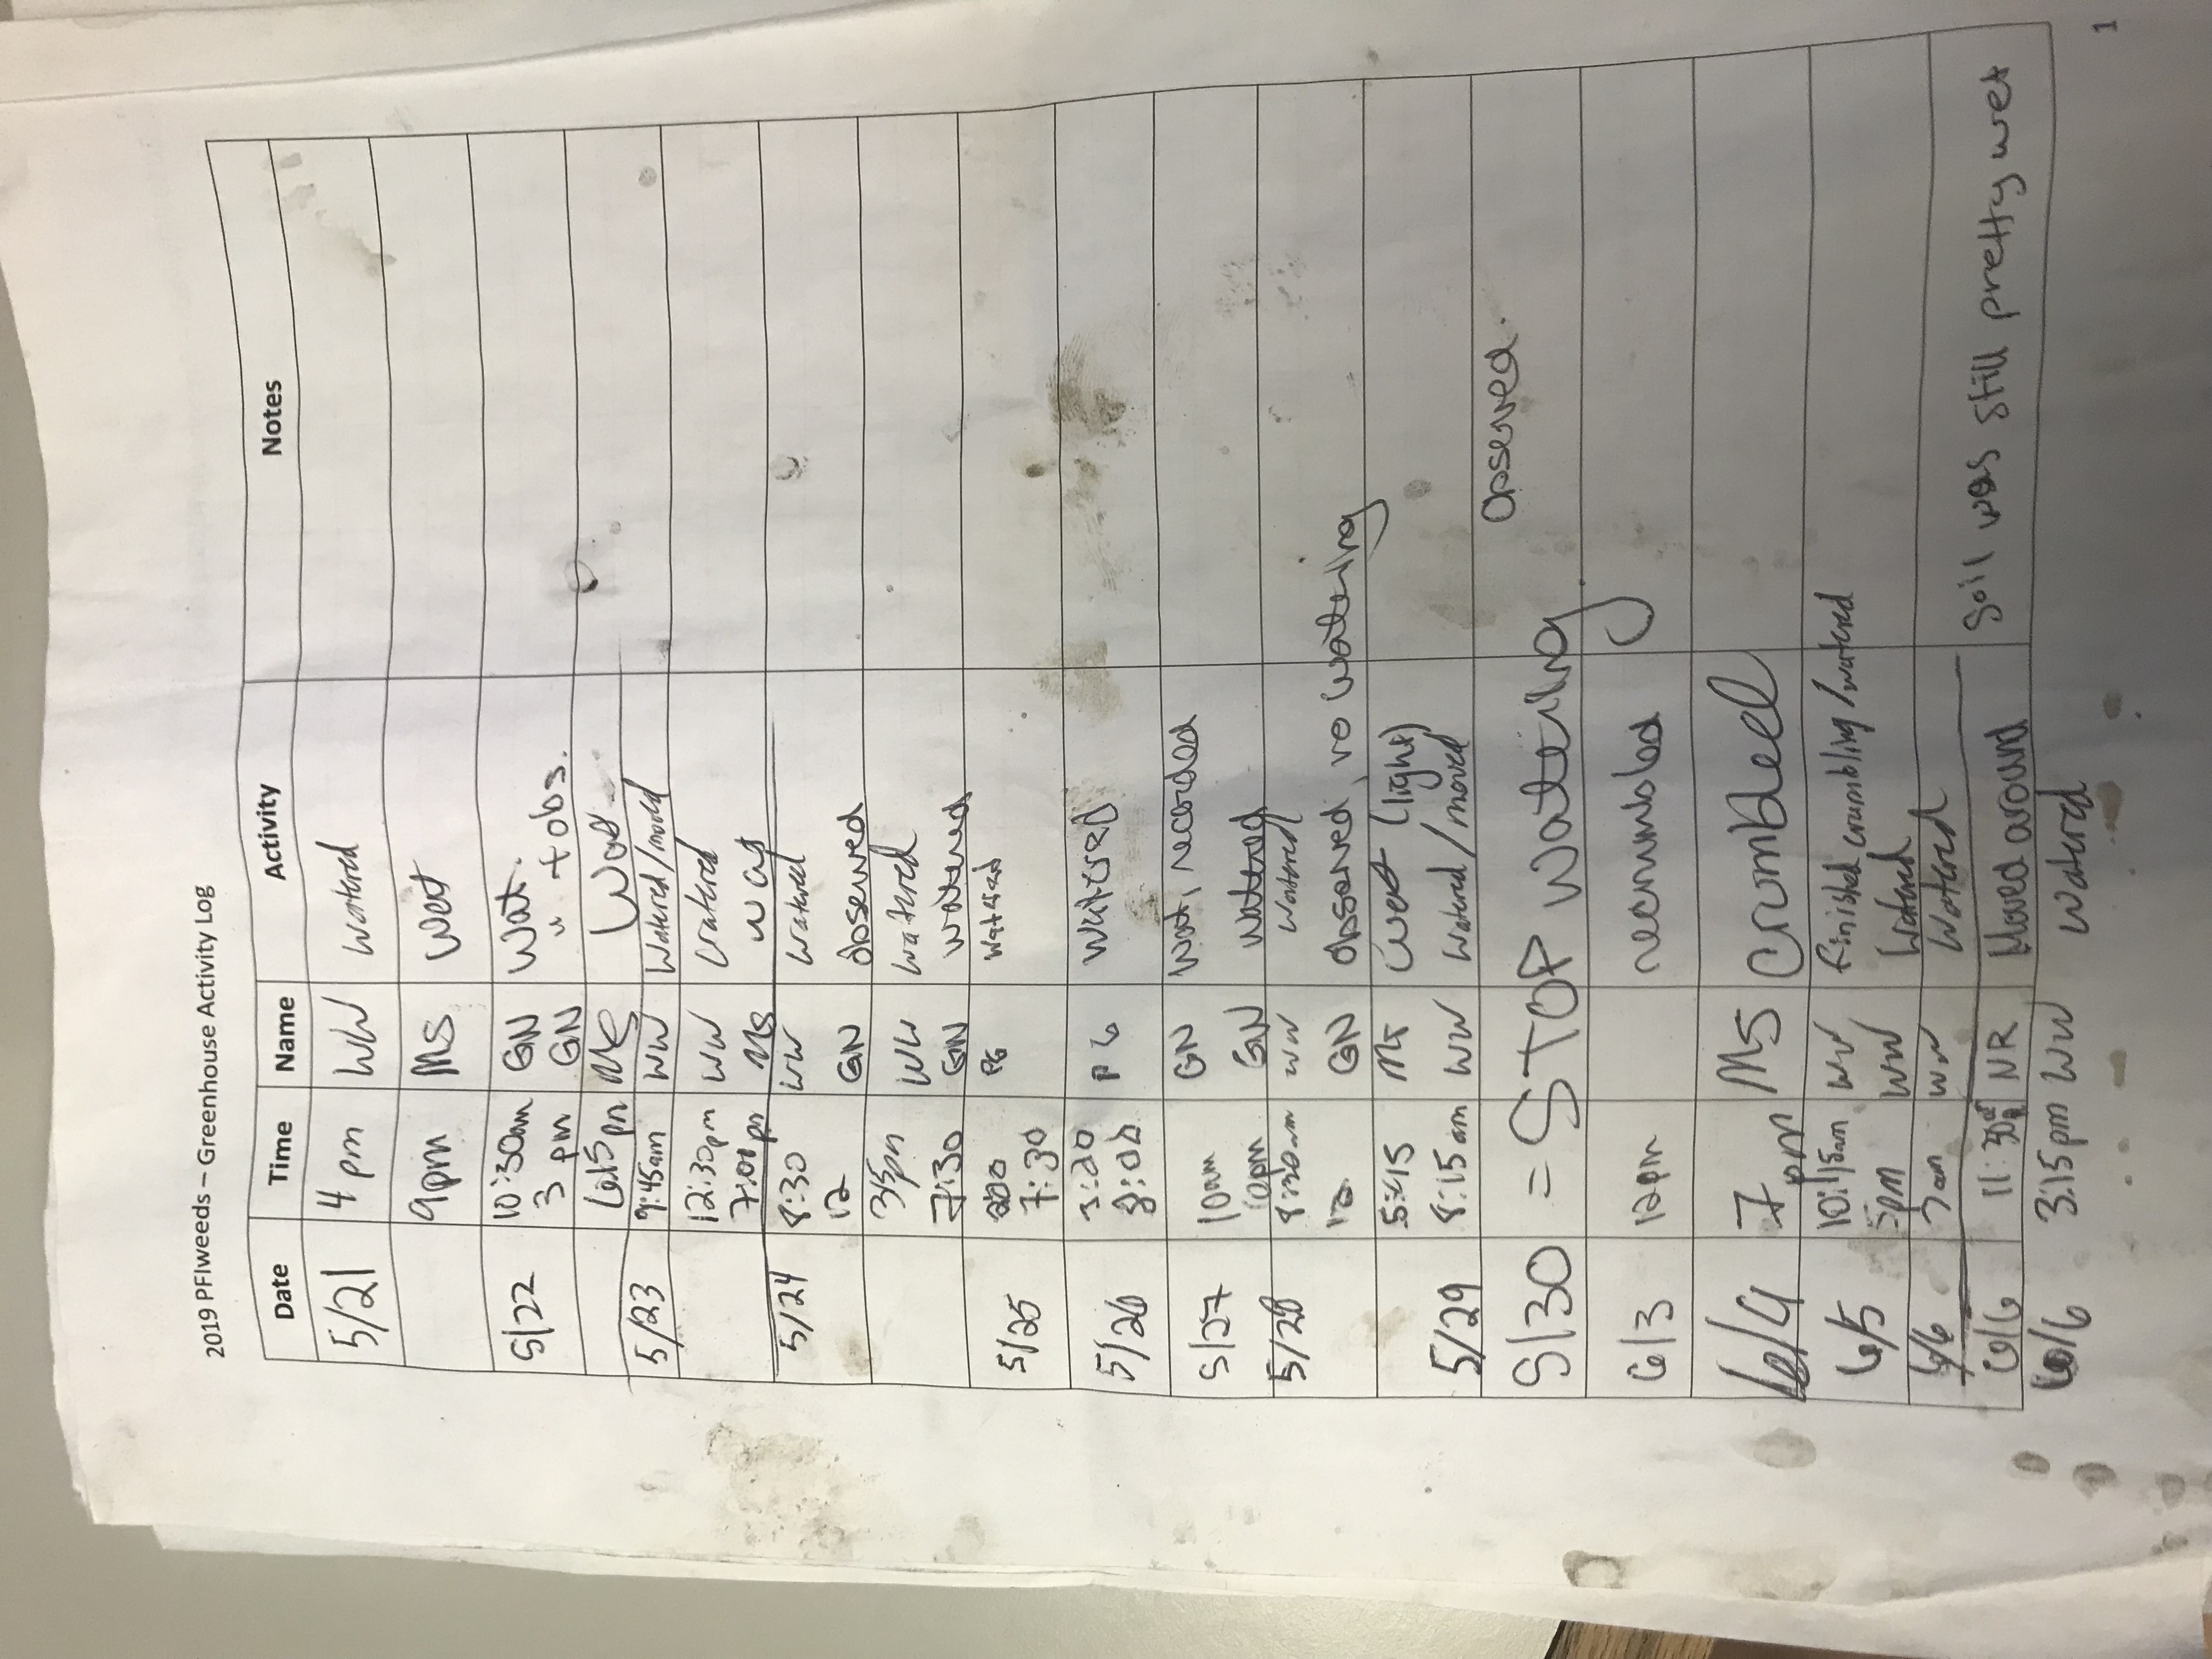 2019 PFIweeds – Greenhouse Activity Log
Date Time Name Activity Notes
5/21 4 pm WW Watered
9pm MS Wat
5/22 10:30am GN Wat.
3 pm GN " + obs.
6:15pm MS Wat
5/23 9:45am WW Watered/moved
12:30pm WW Watered
7:00pm MS wat
5/24 8:30 WW Watered
12 GN observed
3:15pm WW Watered
7:30 GN watered
5/25 PG Watered
7:30
5/26 3:20 PG Watered
8:00
5/27 10am GN Wat, recorded
GN Watered
5/28 8:30am WW Watered
12 GN observed, no watering
5:45 Wat (light)
5/29 8:15am WW Watered/moved
5/30 = STOP watering. Observed.
6/3 12pm recrumbled
6/4 7pm MS crumbled
6/5 10:15am WW Finished crumbling/watered
5pm WW Watered
6/6 7am WW Watered
6/6 11:30am NR Moved around Soil was still pretty wet
6/6 3:15pm WW Watered
1